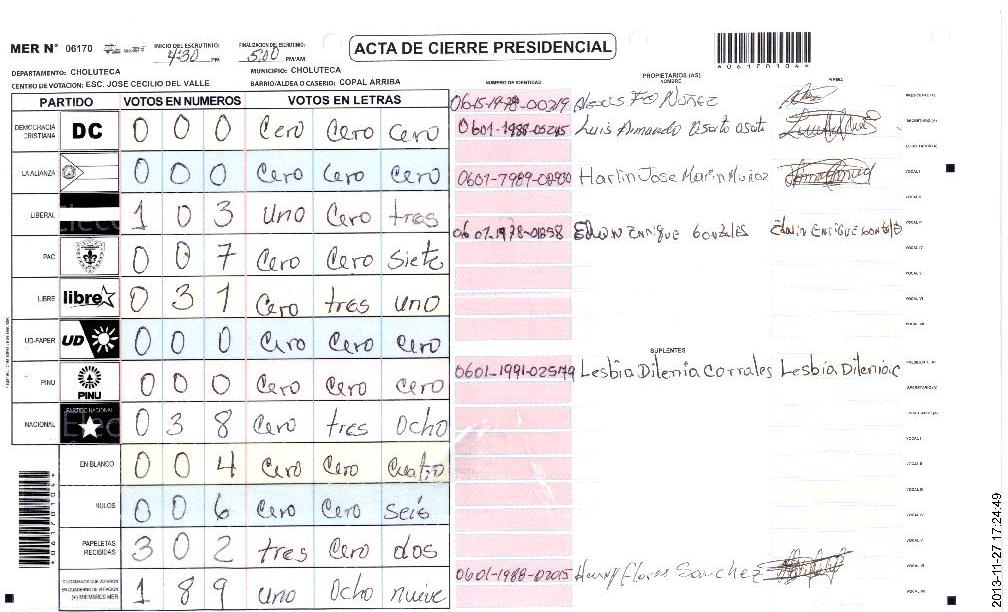 MER N° 06170
INICIO DEL ESCRUTINIO: 4:30 PM
FINALIZACION DEL ESCRUTINIO: 5:00 PM/AM
ACTA DE CIERRE PRESIDENCIAL
*06170104*
DEPARTAMENTO: CHOLUTECA
MUNICIPIO: CHOLUTECA
CENTRO DE VOTACION: ESC. JOSE CECILIO DEL VALLE
BARRIO/ALDEA O CASERIO: COPAL ARRIBA
NUMERO DE IDENTIDAD
PROPIETARIOS (AS)
NOMBRE
FIRMA
PARTIDO VOTOS EN NUMEROS VOTOS EN LETRAS
DEMOCRACIA CRISTIANA DC 0 0 0 Cero Cero Cero
LA ALIANZA 0 0 0 Cero Cero Cero
LIBERAL 1 0 3 Uno Cero tres
PAC 0 0 7 Cero Cero Siete
LIBRE libre 0 3 1 Cero tres uno
UD-FAPER UD 0 0 0 Cero Cero Cero
PINU PINU 0 0 0 Cero Cero Cero
NACIONAL PARTIDO NACIONAL 0 3 8 Cero tres Ocho
EN BLANCO 0 0 4 Cero Cero Cuatro
NULOS 0 0 6 Cero Cero seis
PAPELETAS RECIBIDAS 3 0 2 tres Cero dos
CIUDADANOS QUE VOTARON EN CUADERNO DE VOTACION (+) MIEMBROS MER 1 8 9 Uno Ocho nueve
*06170104*
PRESIDENTE (A)
Luis Armando
SECRETARIO (A)
Harlin Jose Marin Muñoz
VOCAL I
Edwin Enrique Gonzales Edwin Enrique Gonzales
VOCAL III
VOCAL IV
VOCAL V
VOCAL VI
VOCAL VII
SUPLENTES
Lesbia Dilenia Corrales Lesbia Dilenia C
PRESIDENTE (A)
SECRETARIO (A)
VOCAL I
VOCAL II
VOCAL III
VOCAL IV
VOCAL V
0601-1988-02015 Henry Flores Sanchez
VOCAL VI
VOCAL VII
2013-11-27 17:24:49